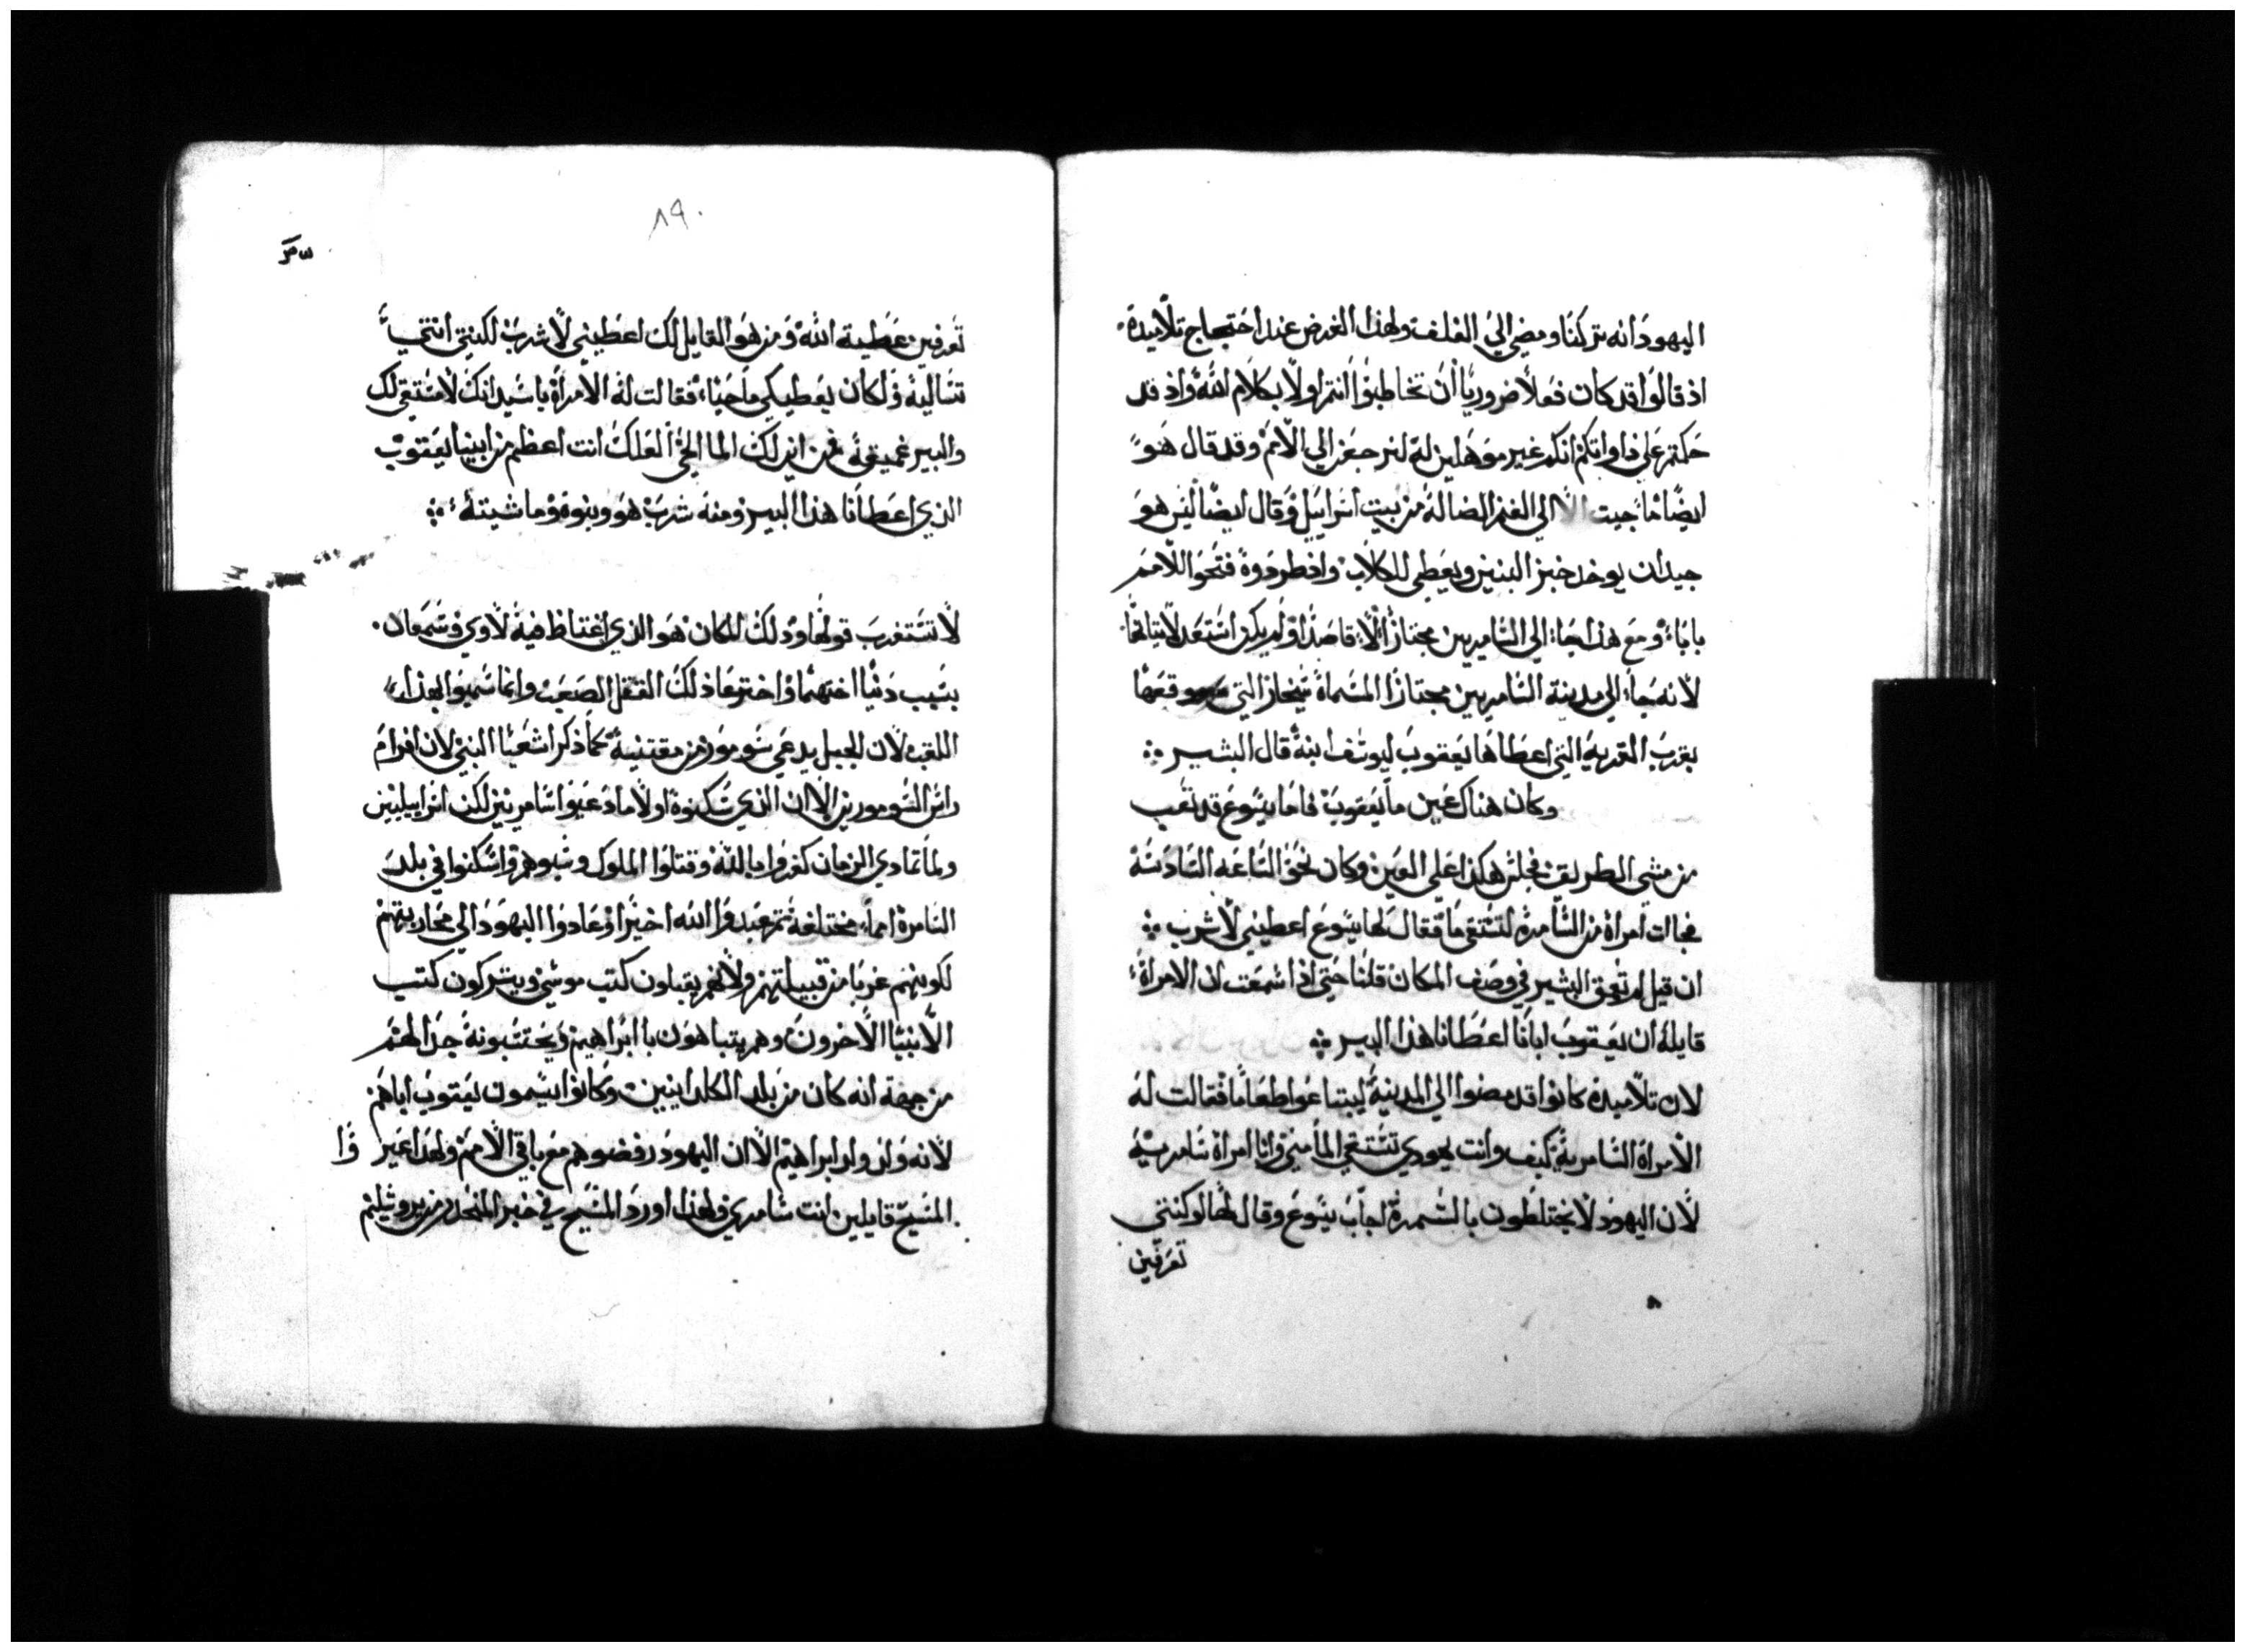 اليهود انه تركنا ومضي الي الغلف ولهذا الغرض عند احتجاج تلاميذه
اذ قالوا قد كان فعلاً ضرورياً ان تخاطبوا انتم اولاً بكلام الله واذ قد
حكمتم علي ذاواتكم انكم غير موهلين له لنرجعن الي الامم وقد قال هو
ايضًا ما جيت الا الي الغنم الضالة من بيت اسراييل وقال ايضًا ليس هو
جيدان يوخد خبز البنين ويعطي للكلاب واذ طردوه فتحوا للامم
بابًا ومع هذا جاء الي السامريين مجتازًا لا قاصدًا ولم يكن استعد لاتيانها
لانه جاء الي مدينة السامريين مجتازًا المسماة سيخار التي موقعها
بقرب القرية التي اعطاها يعقوب ليوسف ابنه قال البشير
وكان هناك عين ما يعقوب فاما يسوع قد تعب
من مشي الطريق فجلس هكذا علي العين وكان نحو الساعه السادسه
فجاات امراة من السامرة لتستقي ما فقال لها يسوع اعطيني لاشرب
ان قيل لم تعمق البشير في وصف المكان قلنا حتي اذا سمعت ان الامراة
قايله ان يعقوب ابانا اعطانا هذا البير
لان تلاميذه كانوا قد مضوا الي المدينة ليبتاعوا طعاما فقالت له
الامراة السامرية كيف وانت يهودي تستقي الما مني وانا امراة سامرية
لان اليهود لا يختلطون بالسمرة اجاب يسوع وقال لها لو كنتي
تعرفين
٨٩
تعرفين عطية الله ومن هو القايل لك اعطيني لاشرب لكنتي انتي
تساليه ولكان يعطيكي ما حيا فقالت له الامراة يا سيد انك لا مستقي لك
والبير عميقه فمن اين لك الما الحي العلك انت اعظم من ابينا يعقوب
الذي اعطانا هذا البير ومنه شرب هو وبنوه وماشيته
لا تستغرب قولها ودلك المكان هو الذي اغتاظ فيه لاوي وشمعان
بسبب دنيا اختهما واخترعا ذلك القتل الصعب وانما سميوا بهذا
اللقب لان الجبل يدعي سومور من مقتنيه كما ذكر اشعيا النبي لان افرام
راس السومورين الا ان الذي سكنوه اولا ما دعيوا سامريين لكن اسراييليين
ولما تمادي الزمان كفروا بالله وقتلوا الملوك وسبوهم واسكنوا في بلد
السامرة امما مختلفة ثم عبدوا الله اخيرا وعادوا اليهود الي محاربتهم
لكونهم غربا من قبيلتهم ولانهم يقبلون كتب موسي ويتركون كتب
الانبيا الاخرون وهم يتباهون با ابراهيم ويحتسبونه جدا لهم
من جهة انه كان من بلد الكلدانيين وكانوا يسمون يعقوب اباهم
لانه من اولاد ابراهيم الا ان اليهود رفضوهم مع باقي الامم ولهذا عير وا
المسيح قايلين انت سامري ولهذا اورد المسيح في خبر المنحدر من يروشليم